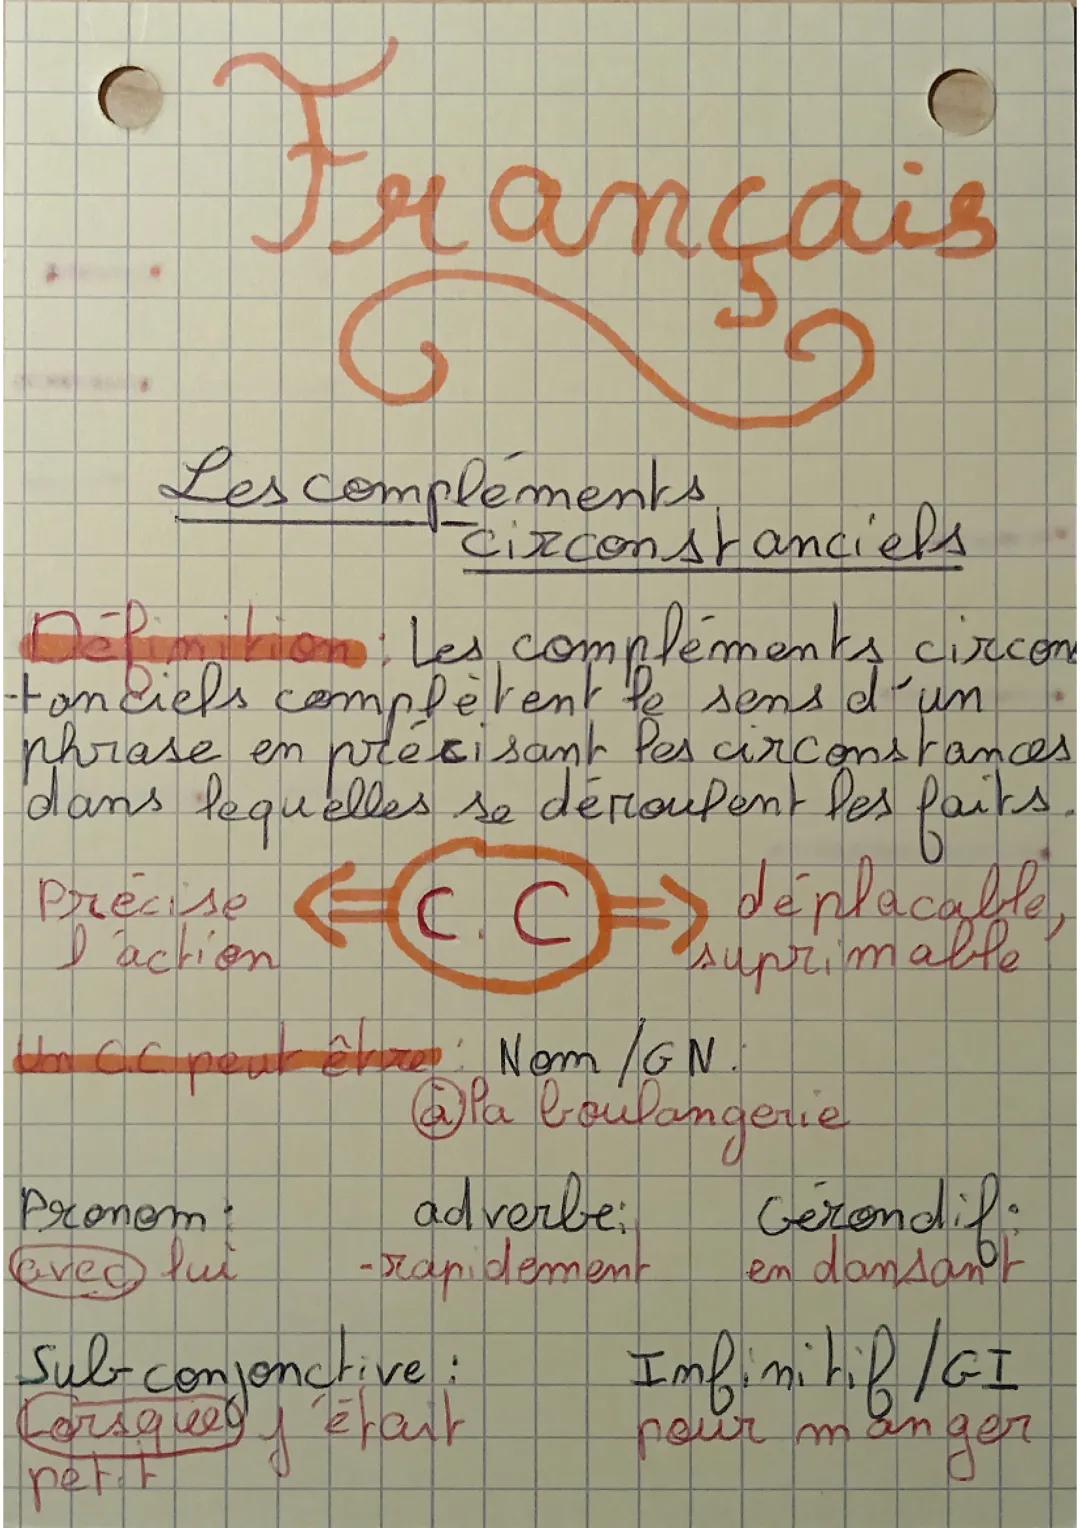 Français
Les compléments
circonstanciels
Définition : Les compléments circons
-tanciels complètent le sens d'un
phrase en précisant les circonstances
dans lequelles se déroulent les faits.
Précise
l'action
C.C
déplacable,
suprimable
Un C.C peut être : Nom /GN :
à la boulangerie
Pronom :
avec lui
adverbe :
-rapidement
Gérondif :
en dansant
Sub-conjonctive :
Lorsque j'était
petit
Infinitif /GI
pour manger